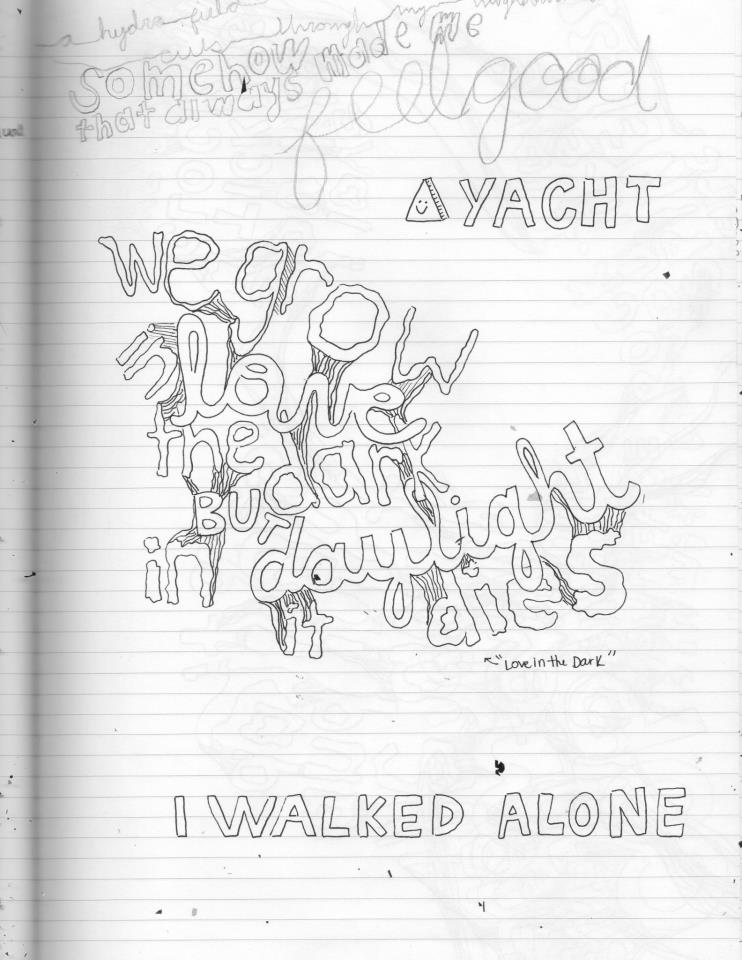 a hydro field
cuts through my neighbourhood
somehow made me
that always
feel good
YACHT
we grow
in love
the dark
BUT
in daylight
it dies
"Love in the Dark"
I WALKED ALONE